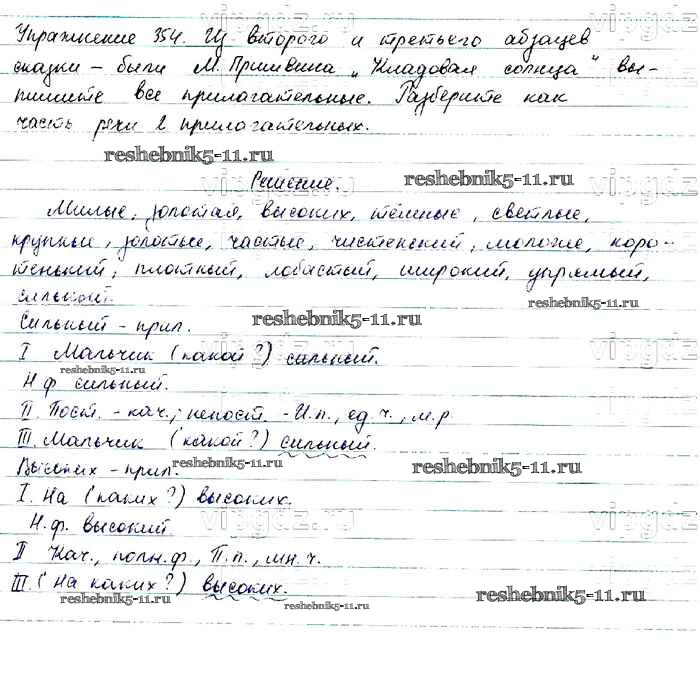 Упражнение 354. Из второго и третьего абзацев
сказки - были М. Пришвина „Кладовая солнца" вы-
пишите все прилагательные. Разберите как
часть речи 2 прилагательных.
reshebnik5-11.ru
Решение.
reshebnik5-11.ru
Милые, золотая, высоких, тёмные, светлые,
крупные, золотые, частые, чистенский, мелкие, коро-
тенький, плотный, лобастый, широкий, упрямый,
сильный.
reshebnik5-11.ru
Сильный - прил.
reshebnik5-11.ru
I Мальчик (какой?) сильный.
reshebnik5-11.ru
Н.ф сильный.
II. Пост. - кач.; непост. - И.п., ед.ч., м.р.
III. Мальчик (какой?) сильный.
Высоких - прил.
reshebnik5-11.ru
reshebnik5-11.ru
I. На (каких?) высоких.
Н.ф. высокий.
vipgdz.ru
II Кач., полн.ф., П.п., мн.ч.
III. (На каких?) высоких.
reshebnik5-11.ru
reshebnik5-11.ru